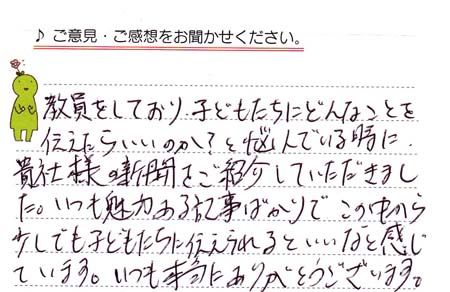 ♪ ご意見・ご感想をお聞かせください。
教員をしており、子どもたちにどんなことを
伝えたらいいのか?と悩んでいる時に、
貴社様の新聞をご紹介していただきまし
た。いつも魅力ある記事ばかりで この中から
少しでも子どもたちに伝えられるといいなと感じ
ています。いつも本当にありがとうございます。